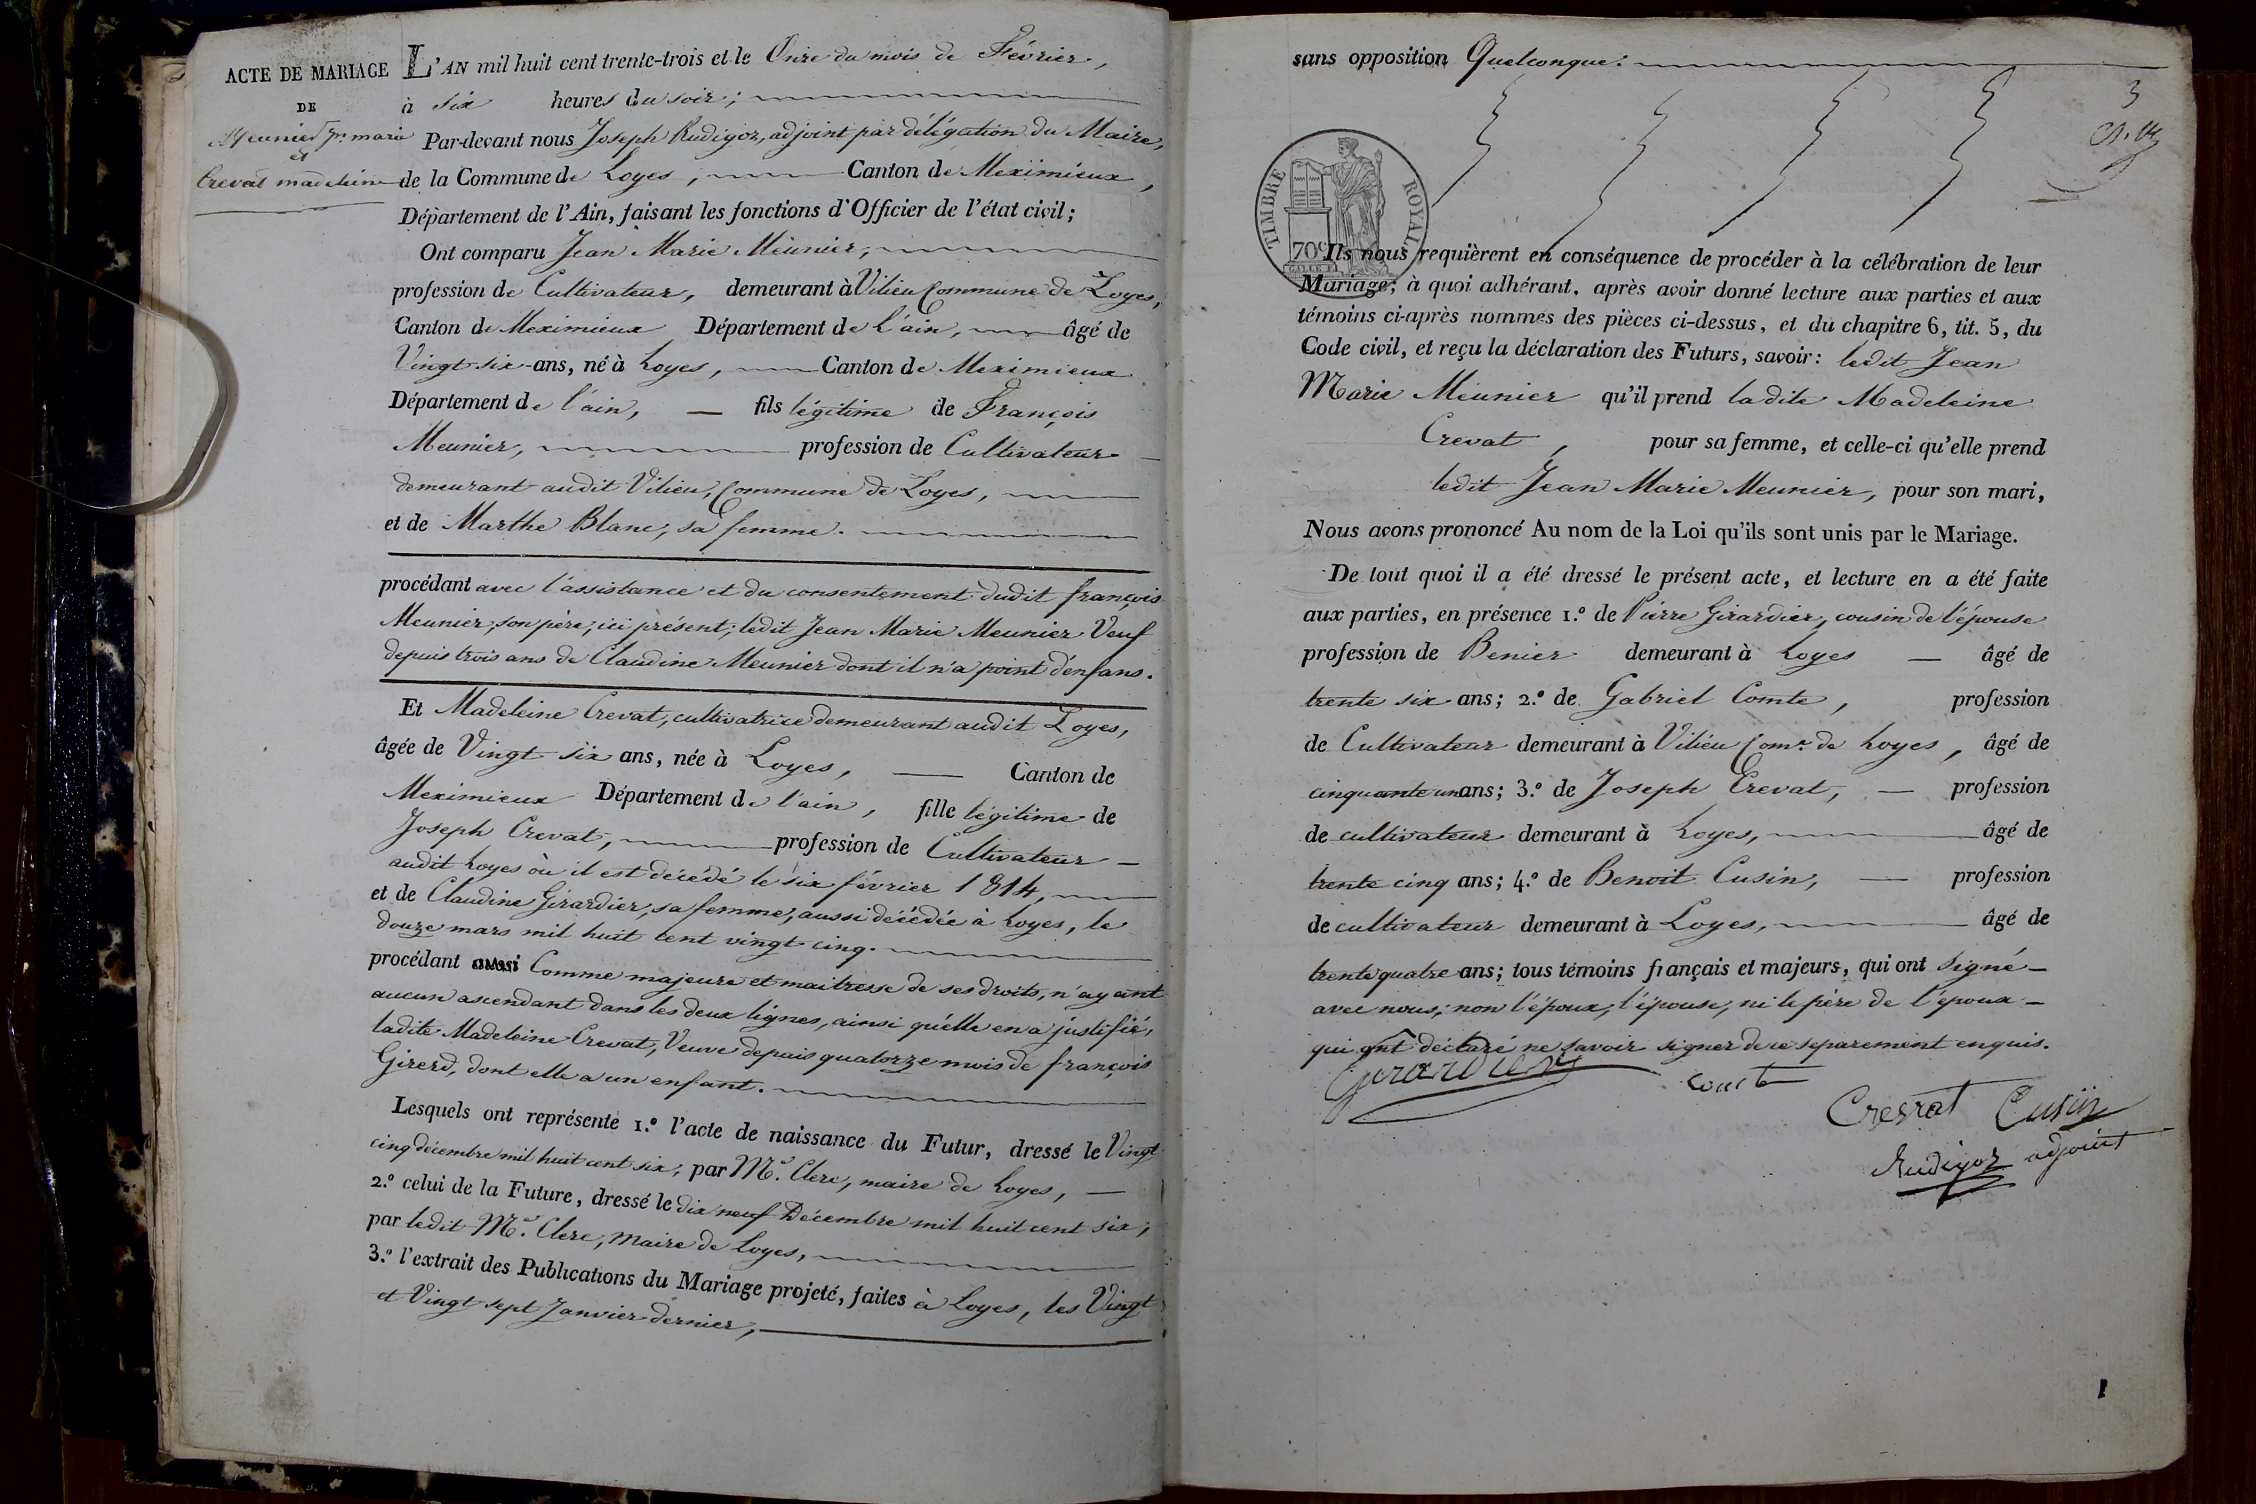 ACTE DE MARIAGE
DE
Meunier Jn marie
et
Crevat madeleine
L'AN mil huit cent trente-trois et le Onze du mois de Février,
à six heures du soir;
Par-devant nous Joseph Rudigoz, adjoint par délégation du Maire,
de la Commune de Loyes, Canton de Meximieux,
Département de l'Ain, faisant les fonctions d'Officier de l'état civil;
Ont comparu Jean Marie Meunier,
profession de Cultivateur, demeurant à Vilieu Commune de Loyes,
Canton de Meximieux Département de l'ain, âgé de
Vingt six ans, né à Loyes, Canton de Meximieux
Département de l'ain, — fils légitime de François
Meunier, profession de Cultivateur
demeurant audit Vilieu, Commune de Loyes,
et de Marthe Blanc, sa femme.
procédant avec l'assistance et du consentement dudit françois
Meunier, son père, ici présent; ledit Jean Marie Meunier Veuf
depuis trois ans de Claudine Meunier dont il n'a point d'enfans.
Et Madeleine Crevat, cultivatrice demeurant audit Loyes,
âgée de Vingt six ans, née à Loyes, — Canton de
Meximieux Département de l'ain, fille légitime de
Joseph Crevat, profession de Cultivateur —
audit Loyes où il est décédé le six février 1814,
et de Claudine Girardier, sa femme, aussi décédée à Loyes, le
douze mars mil huit cent vingt cinq.
procédant aussi Comme majeure et maitresse de ses droits, n'ayant
aucun ascendant dans les deux lignes, ainsi qu'elle en a justifié,
ladite Madeleine Crevat, Veuve depuis quatorze mois de françois
Girerd, dont elle a un enfant.
Lesquels ont représenté 1.º l'acte de naissance du Futur, dressé le Vingt
cinq décembre mil huit cent six, par Mr. Clerc, maire de Loyes, —
2.º celui de la Future, dressé le dix neuf Décembre mil huit cent six,
par ledit Mr. Clerc, Maire de Loyes,
3.º l'extrait des Publications du Mariage projeté, faites à Loyes, les Vingt
et Vingt sept Janvier dernier,
sans opposition Quelconque.
3
TIMBRE ROYAL
70c
Ils nous requièrent en conséquence de procéder à la célébration de leur
Mariage; à quoi adhérant, après avoir donné lecture aux parties et aux
témoins ci-après nommés des pièces ci-dessus, et du chapitre 6, tit. 5, du
Code civil, et reçu la déclaration des Futurs, savoir: ledit Jean
Marie Meunier qu'il prend ladite Madeleine
Crevat, pour sa femme, et celle-ci qu'elle prend
ledit Jean Marie Meunier, pour son mari,
Nous avons prononcé Au nom de la Loi qu'ils sont unis par le Mariage.
De tout quoi il a été dressé le présent acte, et lecture en a été faite
aux parties, en présence 1.º de Pierre Girardier, cousin de l'épouse
profession de Benier demeurant à Loyes — âgé de
trente six ans; 2.º de Gabriel Comte, profession
de Cultivateur demeurant à Vilieu Come. de Loyes, âgé de
cinquante un ans; 3.º de Joseph Crevat, — profession
de cultivateur demeurant à Loyes, âgé de
trente cinq ans; 4.º de Benoit Cusin, — profession
de cultivateur demeurant à Loyes, âgé de
trente quatre ans; tous témoins français et majeurs, qui ont signé —
avec nous, non l'époux, l'épouse, ni le père de l'époux —
qui ont déclaré ne savoir signer de ce séparement enquis.
Girardier
Comte
Crevat Cusin
Rudigoz adjoint